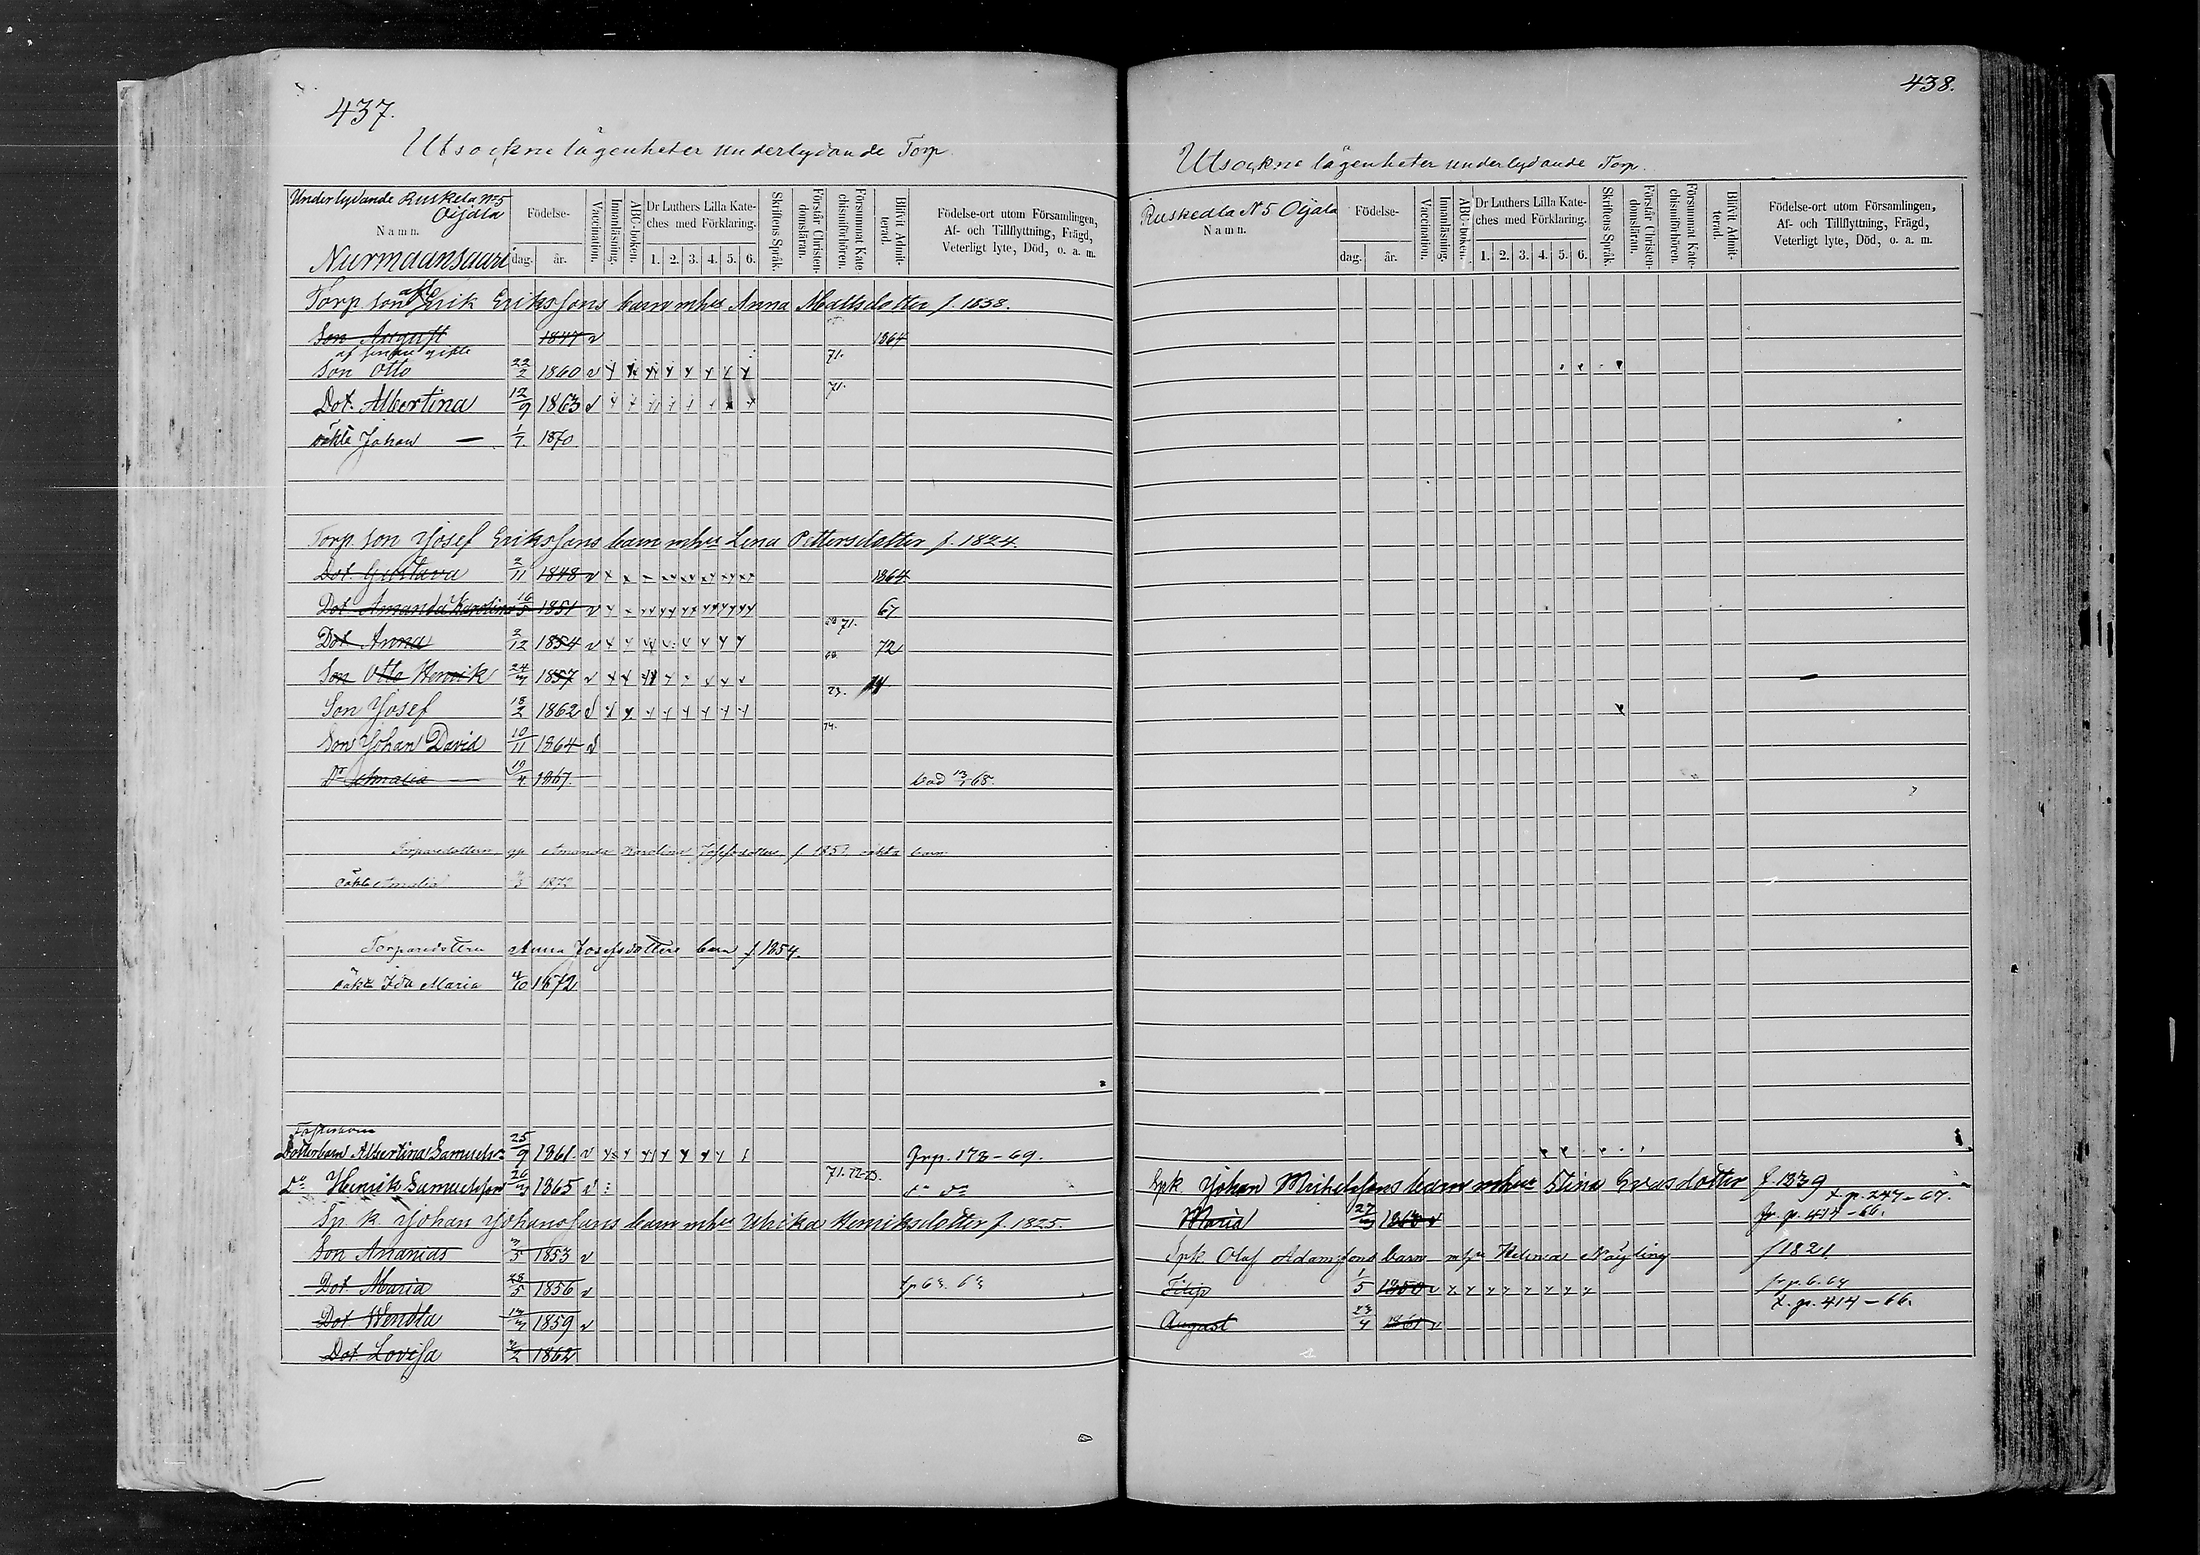 437.
Utsockne lägenheter underlydande Torp
Underlydande Ruskela No 5
Oijala
Namn.
Nurmaansaari
Födelse-
dag. år.
Vaccination.
Innanläsning.
ABC-boken.
Dr Luthers Lilla Kate-
ches med Förklaring.
1. 2. 3. 4. 5. 6.
Skriftens Språk.
Förstår Christen-
domsläran.
Försummat Kate-
chismiförhören.
Blifvit Admit-
terad.
Födelse-ort utom Församlingen,
Af- och Tillflyttning, Frägd,
Veterligt lyte, Död, o. a. m.
Torp son Erik Erikssons barn mhu Anna Mattsdotter f. 1838.
Son August 1847 v 1864
af senare gifte 71.
Son Otto 22/2 1860 v
71.
Dot. Albertina 12/9 1863 v
oäkta Johan — 1/7. 1870
Torp. son Josef Erikssons barn mhu Lena Pettersdotter f. 1824.
Dot. Gustava 2/11 1848 v 1864
Dot Amanda Karolina 16/5 1851 v 67.
71.
Dot Anna 2/12 1854 v 72
Son Otto Henrik 24/7 1857 v
73.
Son Josef 18/2 1862 v
74.
Son Johan David 10/11 1864 v
Dr Amalia 19/4 1867. död 13/1 68.
Torparedottern Amanda Karolina Josefsdotters f. 1851 oäkta barn
oäkta Amalia 1872
Torparedottern Anna Josefsdotters barn f. 1854.
oäkta Ida Maria 4/10 1872
Dotterbarn Albertina Samuelsr 25/9 1861. v Frp. 173-69.
71. 72-73.
Do Henrik Samuelsson 26/3 1865 v do do
Sp. k. Johan Johanssons barn mhu Ulrika Henriksdotter f. 1825.
Son Ananias 3/5 1853 v
Dot. Maria 28/5 1856 v tp 63. 63
Dot Wendla 13/7 1859 v
Dot. Lovisa 1862
438.
Utsockne lägenheter underlydande Torp.
Ruskedla N 5 Oijala
Namn.
Födelse-
dag. år.
Vaccination.
Innanläsning.
ABC-boken.
Dr Luthers Lilla Kate-
ches med Förklaring.
1. 2. 3. 4. 5. 6.
Skriftens Språk.
Förstår Christen-
domsläran.
Försummat Kate-
chismiförhören.
Blifvit Admit-
terad.
Födelse-ort utom Församlingen,
Af- och Tillflyttning, Frägd,
Veterligt lyte, Död, o. a. m.
Spk. Johan Mickelssons barn mhu Stina Evasdotter f. 1839
t. p. 247-67.
Maria 27/3 1863 v fr. p. 414-66.
Spk. Olof Adamssons barn mhu Helena Näyling f 1821
Filip 1/5 1850 v fr p. 6. 64
t. p. 414-66.
August 23/4 1861 v